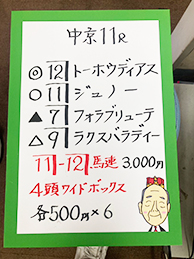 中京11R
◎12 トーホウディアス
○11 ジュノー
▲7 フォラブリューテ
△9 ラクスバラディー
11-12 馬連 3,000円
4頭ワイドボックス
各500円×6